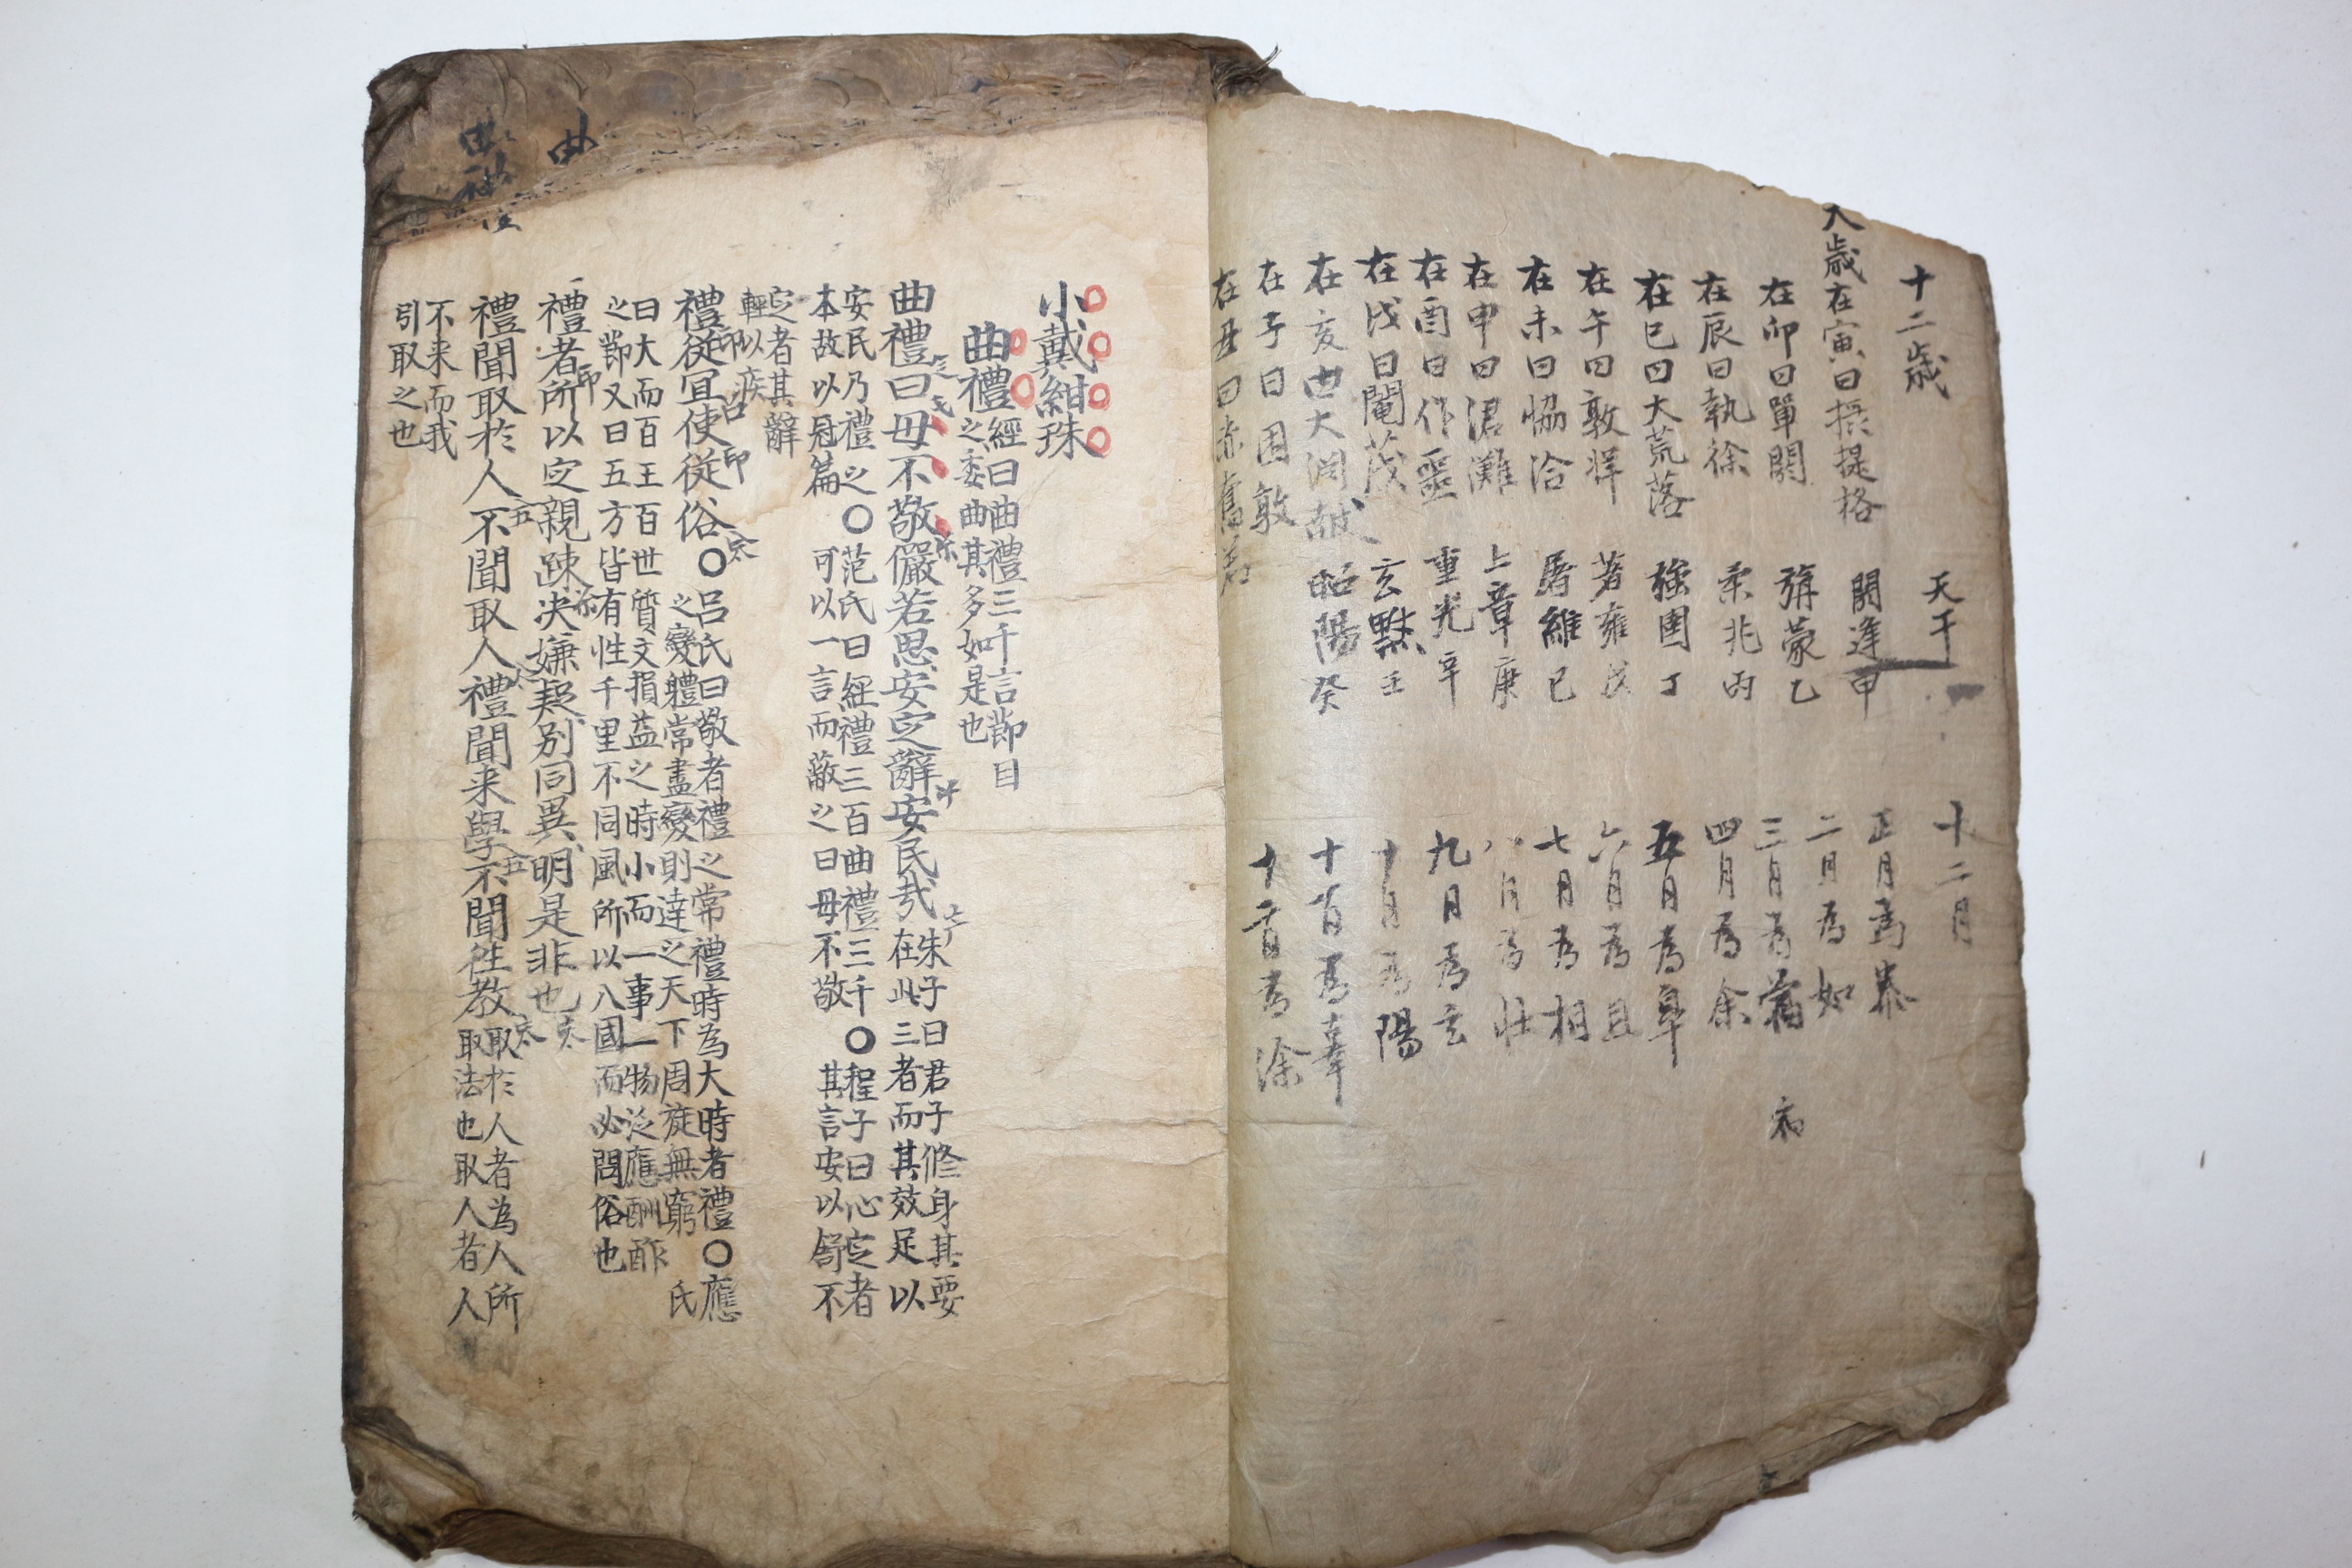 十二歲 天干 十二月
大歲在寅曰攝提格 閼逢甲 正月為泰
在卯曰單閼 旃蒙乙 二月為如
在辰曰執徐 柔兆丙 三月為 病
在巳曰大荒落 強圉丁 四月為余
在午曰敦牂 著雍戊 五月為皐
在未曰恊洽 屠維己 六月為且
在申曰涒灘 上章庚 七月為相
在酉曰作噩 重光辛 八月為壯
在戌曰閹茂 玄黓壬 九月為玄
在亥曰大淵献 昭陽癸 十月為陽
在子曰困敦 十一月為辜
在丑曰赤奮若 十二月為涂
小戴紺珠
曲禮
經曰曲禮三千言節目
之委曲其多如是也
曲禮曰毋不敬儼若思安定辭安民哉
朱子曰君子修身其要
在此三者而其效足以
安民乃禮之○范氏曰經禮三百曲禮三千○程子曰心定者
本故以冠篇可以一言而蔽之曰毋不敬其言安以舒不
定者其辭
輕以疾
禮從宜使從俗○
呂氏曰敬者禮之常禮時為大時者禮○應
之變軆常盡變則達之天下周旋無窮 氏
曰大而百王百世質文損益之時小而一事一物泛應酬酢
之節又曰五方皆有性千里不同風所以入國而必問俗也
禮者所以定親踈决嫌疑别同異明是非也
禮聞取於人不聞取人禮聞来學不聞往教
取於人者為人所
取法也取人者人
不来而我
引取之也
曲